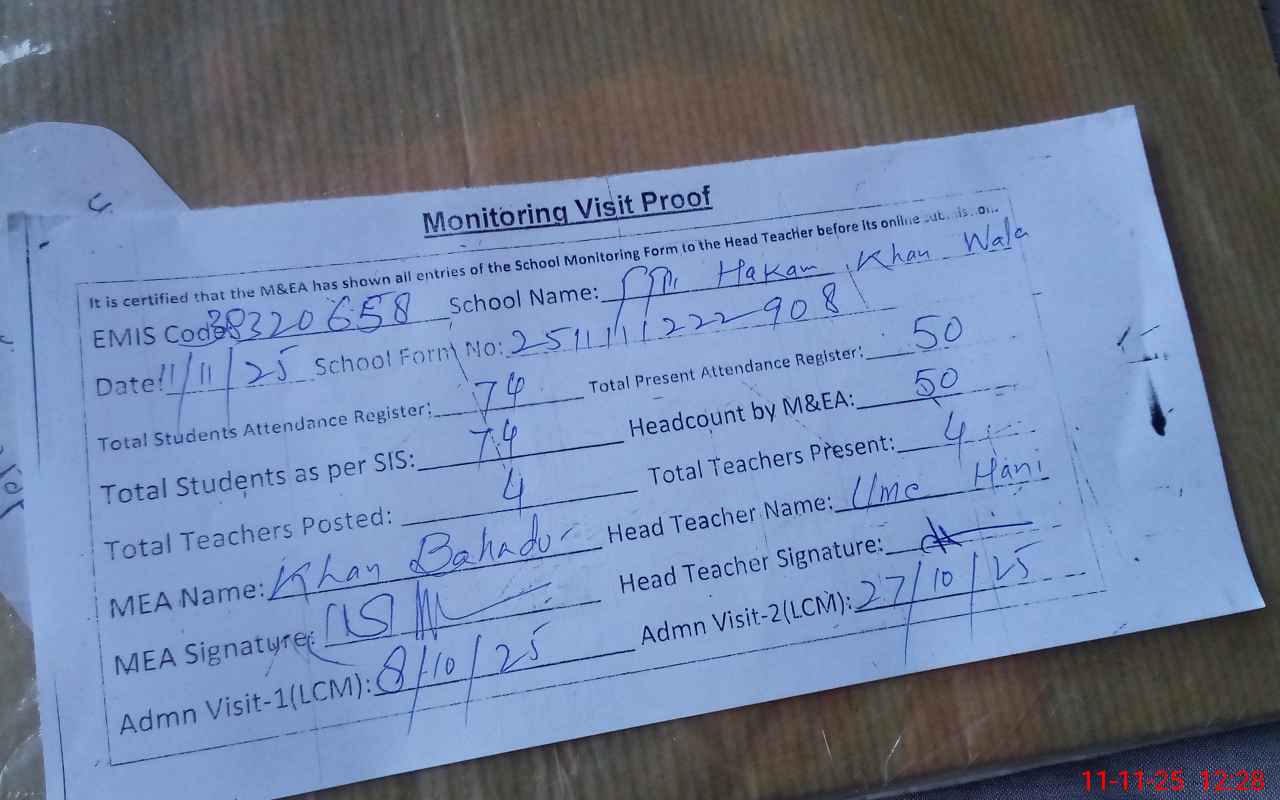 Monitoring Visit Proof
It is certified that the M&EA has shown all entries of the School Monitoring Form to the Head Teacher before its online
EMIS Code: 38320658 School Name: Hakam Khan Wala
Date: 11/11/25 School Form No: 251111222908
Total Students Attendance Register: 74 Total Present Attendance Register: 50
Total Students as per SIS: 74 Headcount by M&EA: 50
Total Teachers Posted: 4 Total Teachers Present: 4
MEA Name: Khan Bahadur Head Teacher Name: Ume Hani
MEA Signature: Head Teacher Signature:
Admn Visit-1(LCM): 8/10/25 Admn Visit-2(LCM): 27/10/25
11-11-25 12:28